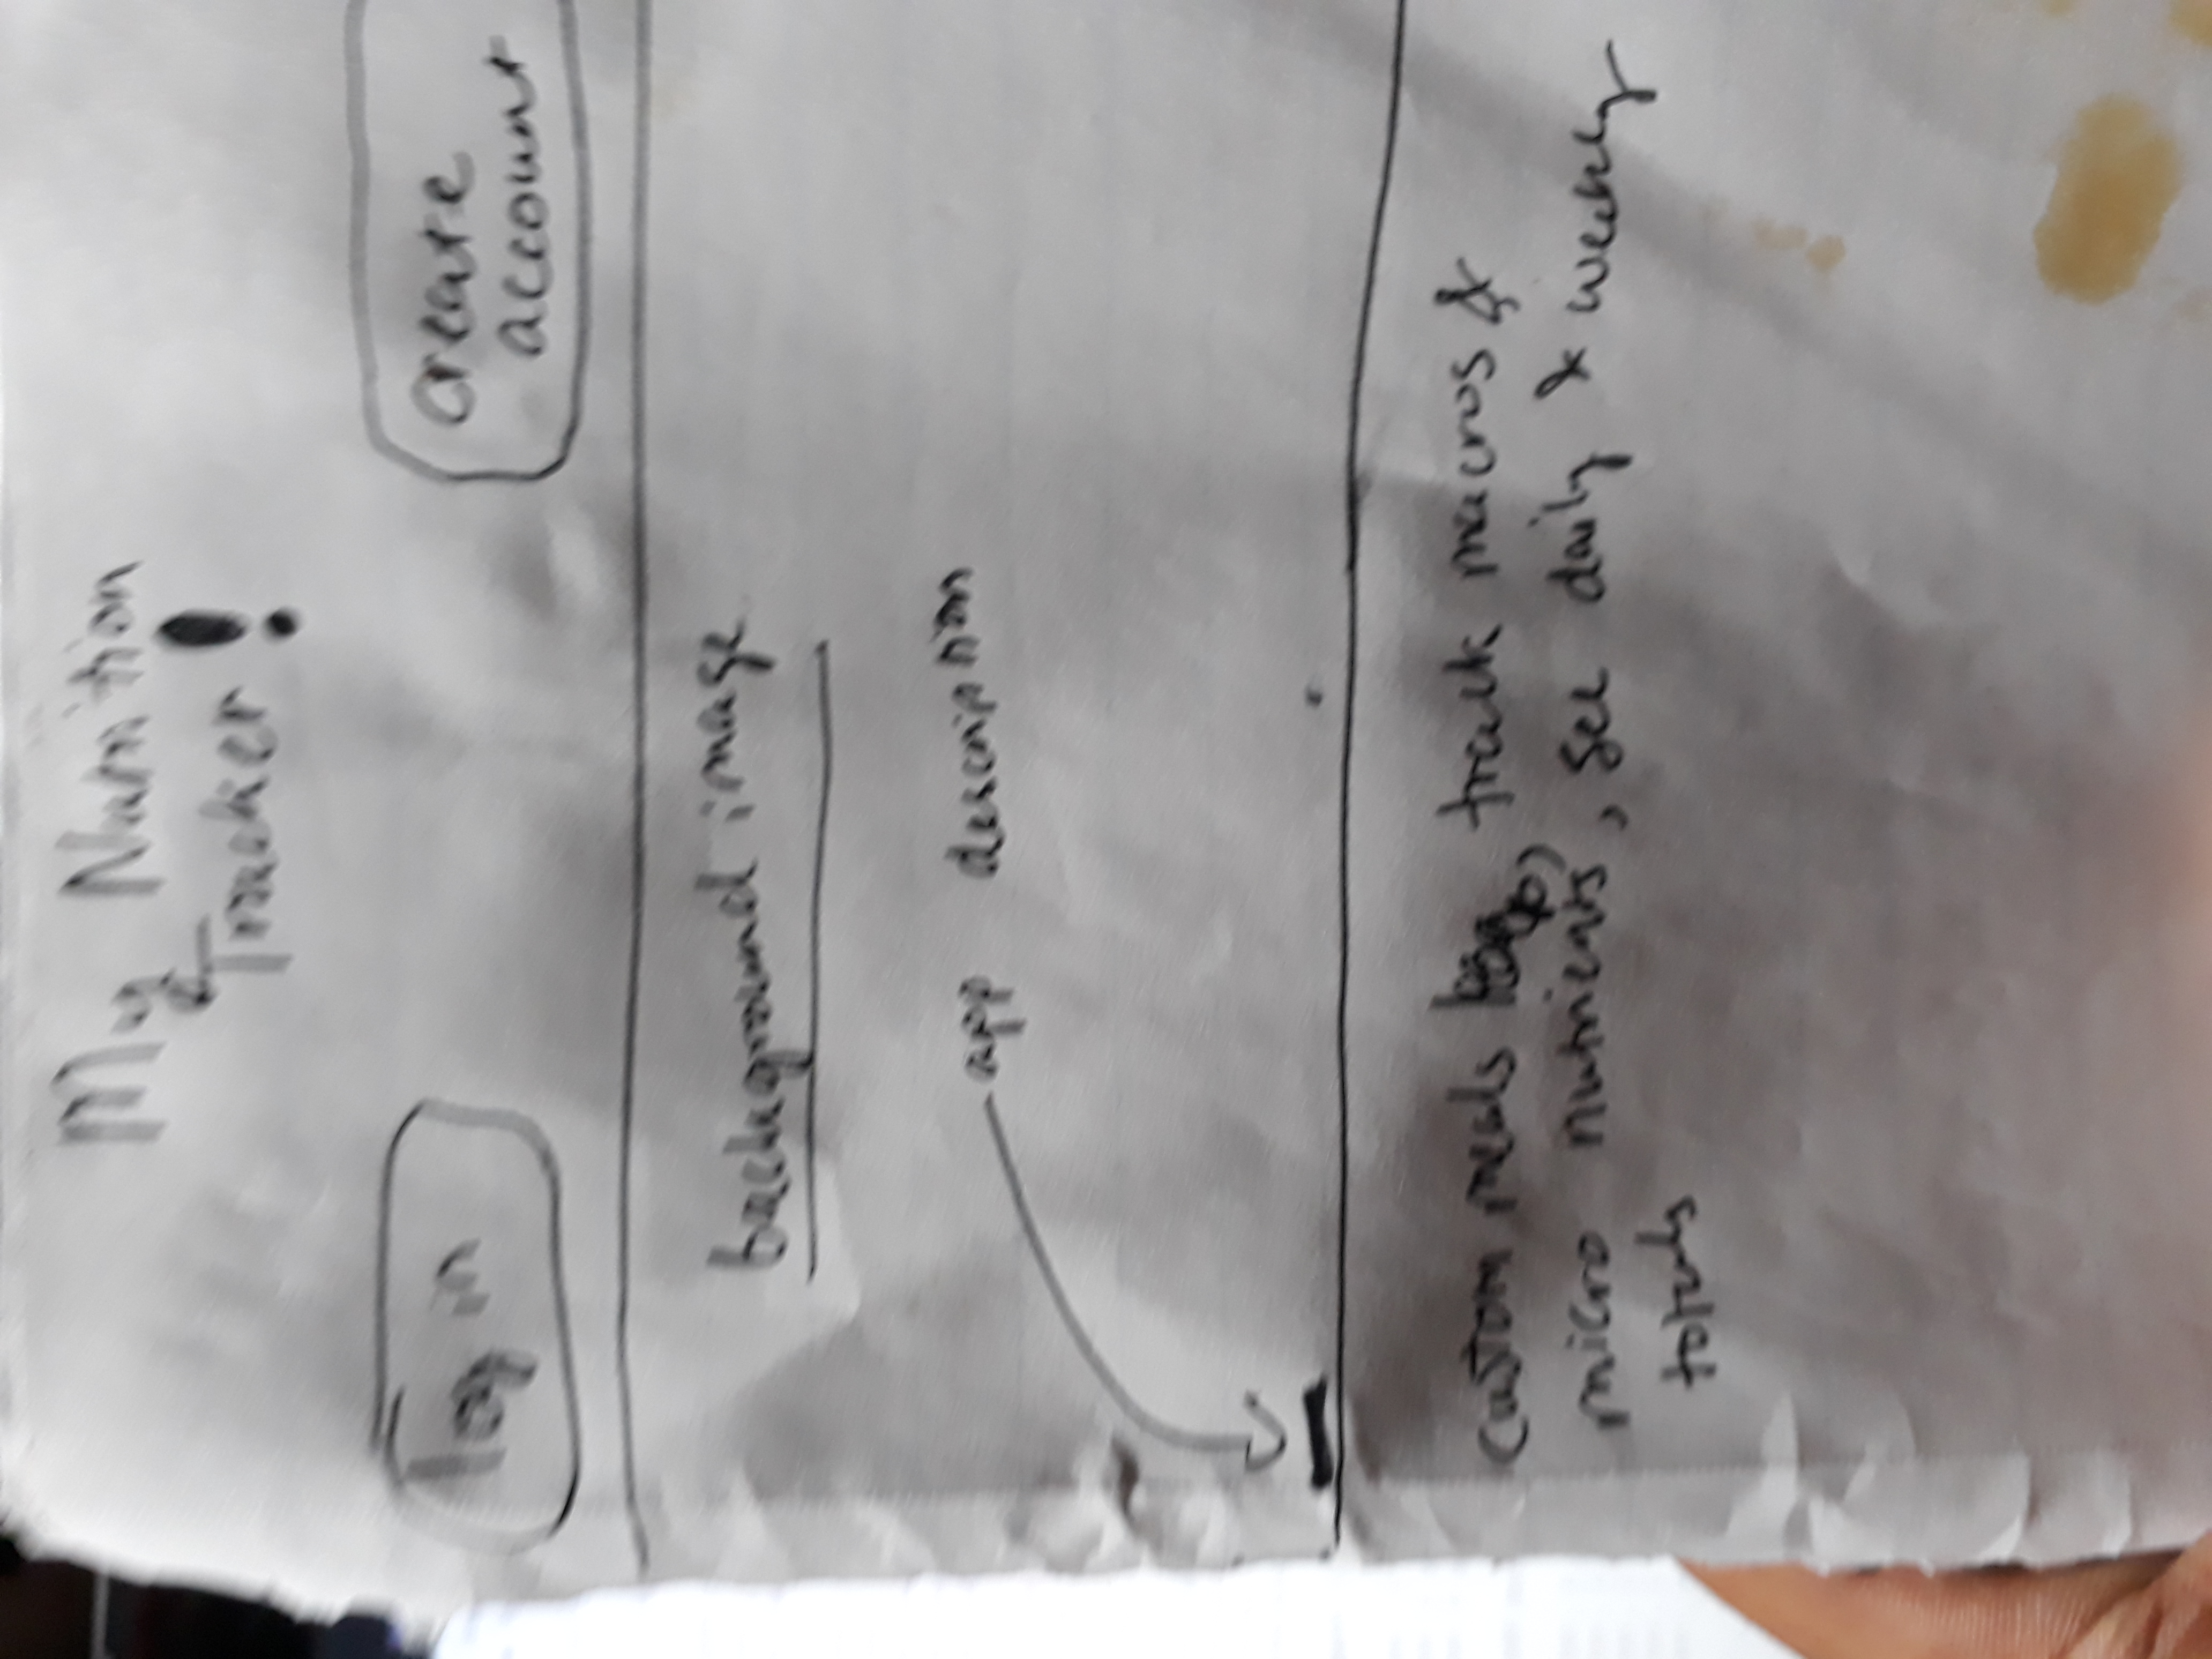 My Nutrition
Tracker!
log in
create
account
background image
app description
custom meals, track macros &
micro nutrients, see daily & weekly
totals